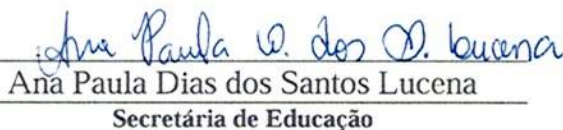 Ana Paula D. dos S. Lucena
Ana Paula Dias dos Santos Lucena
Secretária de Educação